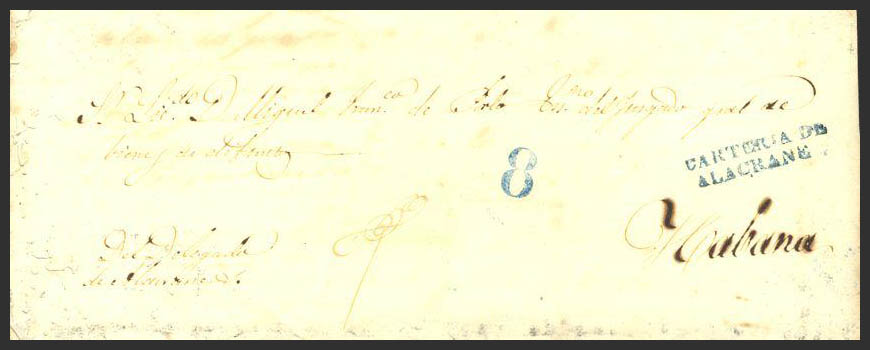 Sr Licdo. D. Miguel Franco. de Esno. del Juzgado gral de
bienes de difuntos
8
CARTERIA DE
ALACRANE
Habana
Del Delegado
de Alacranes